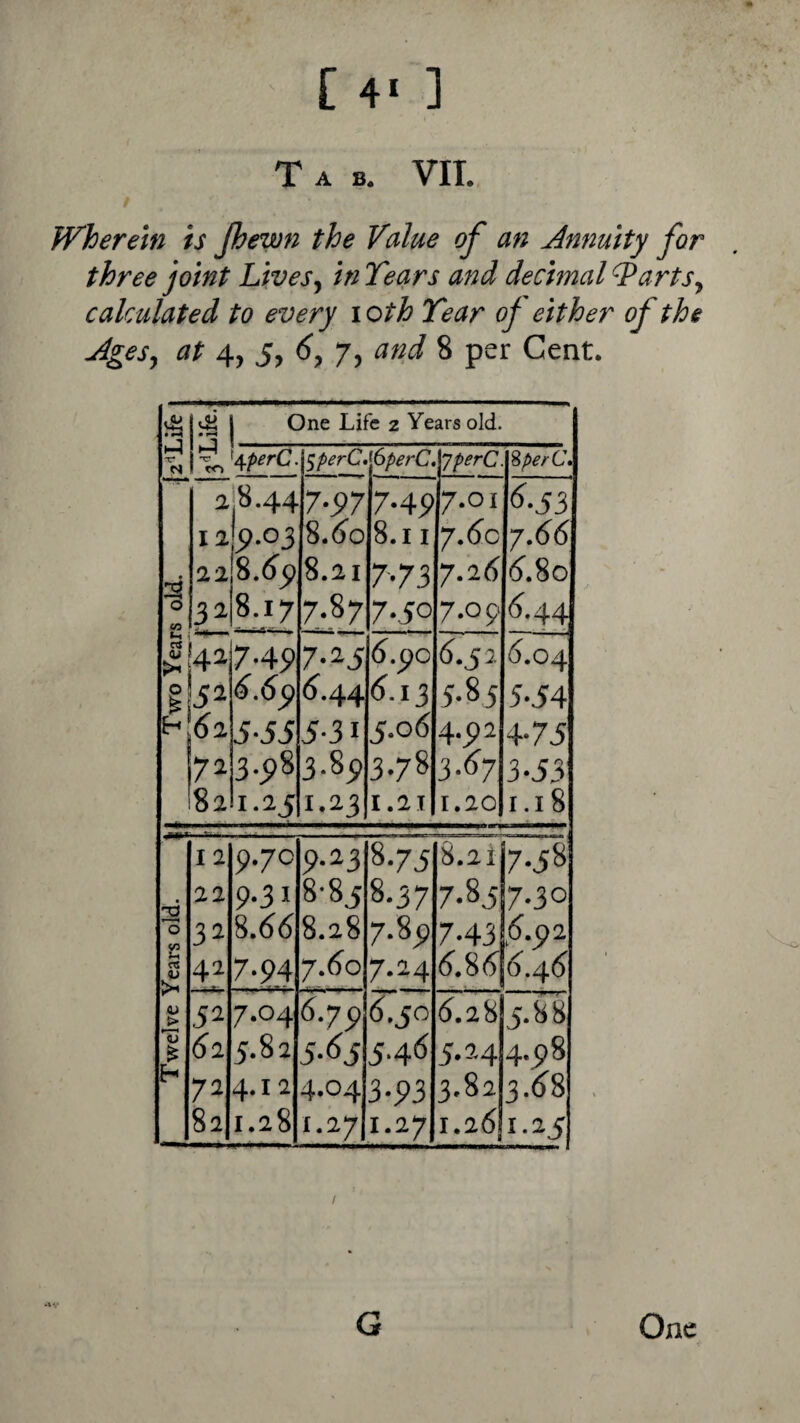 [ 41 ]
TAB. VII.
Wherein is ſhewn the Value of an Annuity for
three joint Lives, in Years and decimal Parts,
calculated to every 10th Year of either of the
Ages, at 4, 5, 6, 7, and 8 per Cent.
2d Life 3d Life. One Life 2 Years old.
4perC. 5perC. 6perC. 7perC. 8perC.
Two Years old.
2 8.44 7.97 7.49 7.01 6.53
12 9.03 8.60 8.11 7.60 7.66
22 8.69 8.21 7.73 7.26 6.80
32 8.17 7.87 7.50 7.09 6.44
42 7.49 7.25 6.90 6.52 6.04
52 6.69 6.44 6.13 5.85 5.54
62 5.55 5.31 5.06 4.92 4.75
72 3.98 3.89 3.78 3.67 3.53
82 1.25 1.23 1.21 1.20 1.18
Twelve Years old.
12 9.70 9.23 8.75 8.21 7.58
22 9.31 8.85 8.37 7.85 7.30
32 8.66 8.28 7.89 7.43 6.92
42 7.94 7.60 7.24 6.86 6.46
52 7.04 6.79 6.50 6.28 5.88
62 5.82 5.65 5.46 5.24 4.98
72 4.12 4.04 3.93 3.82 3.68
82 1.28 1.27 1.27 1.26 1.25
G One